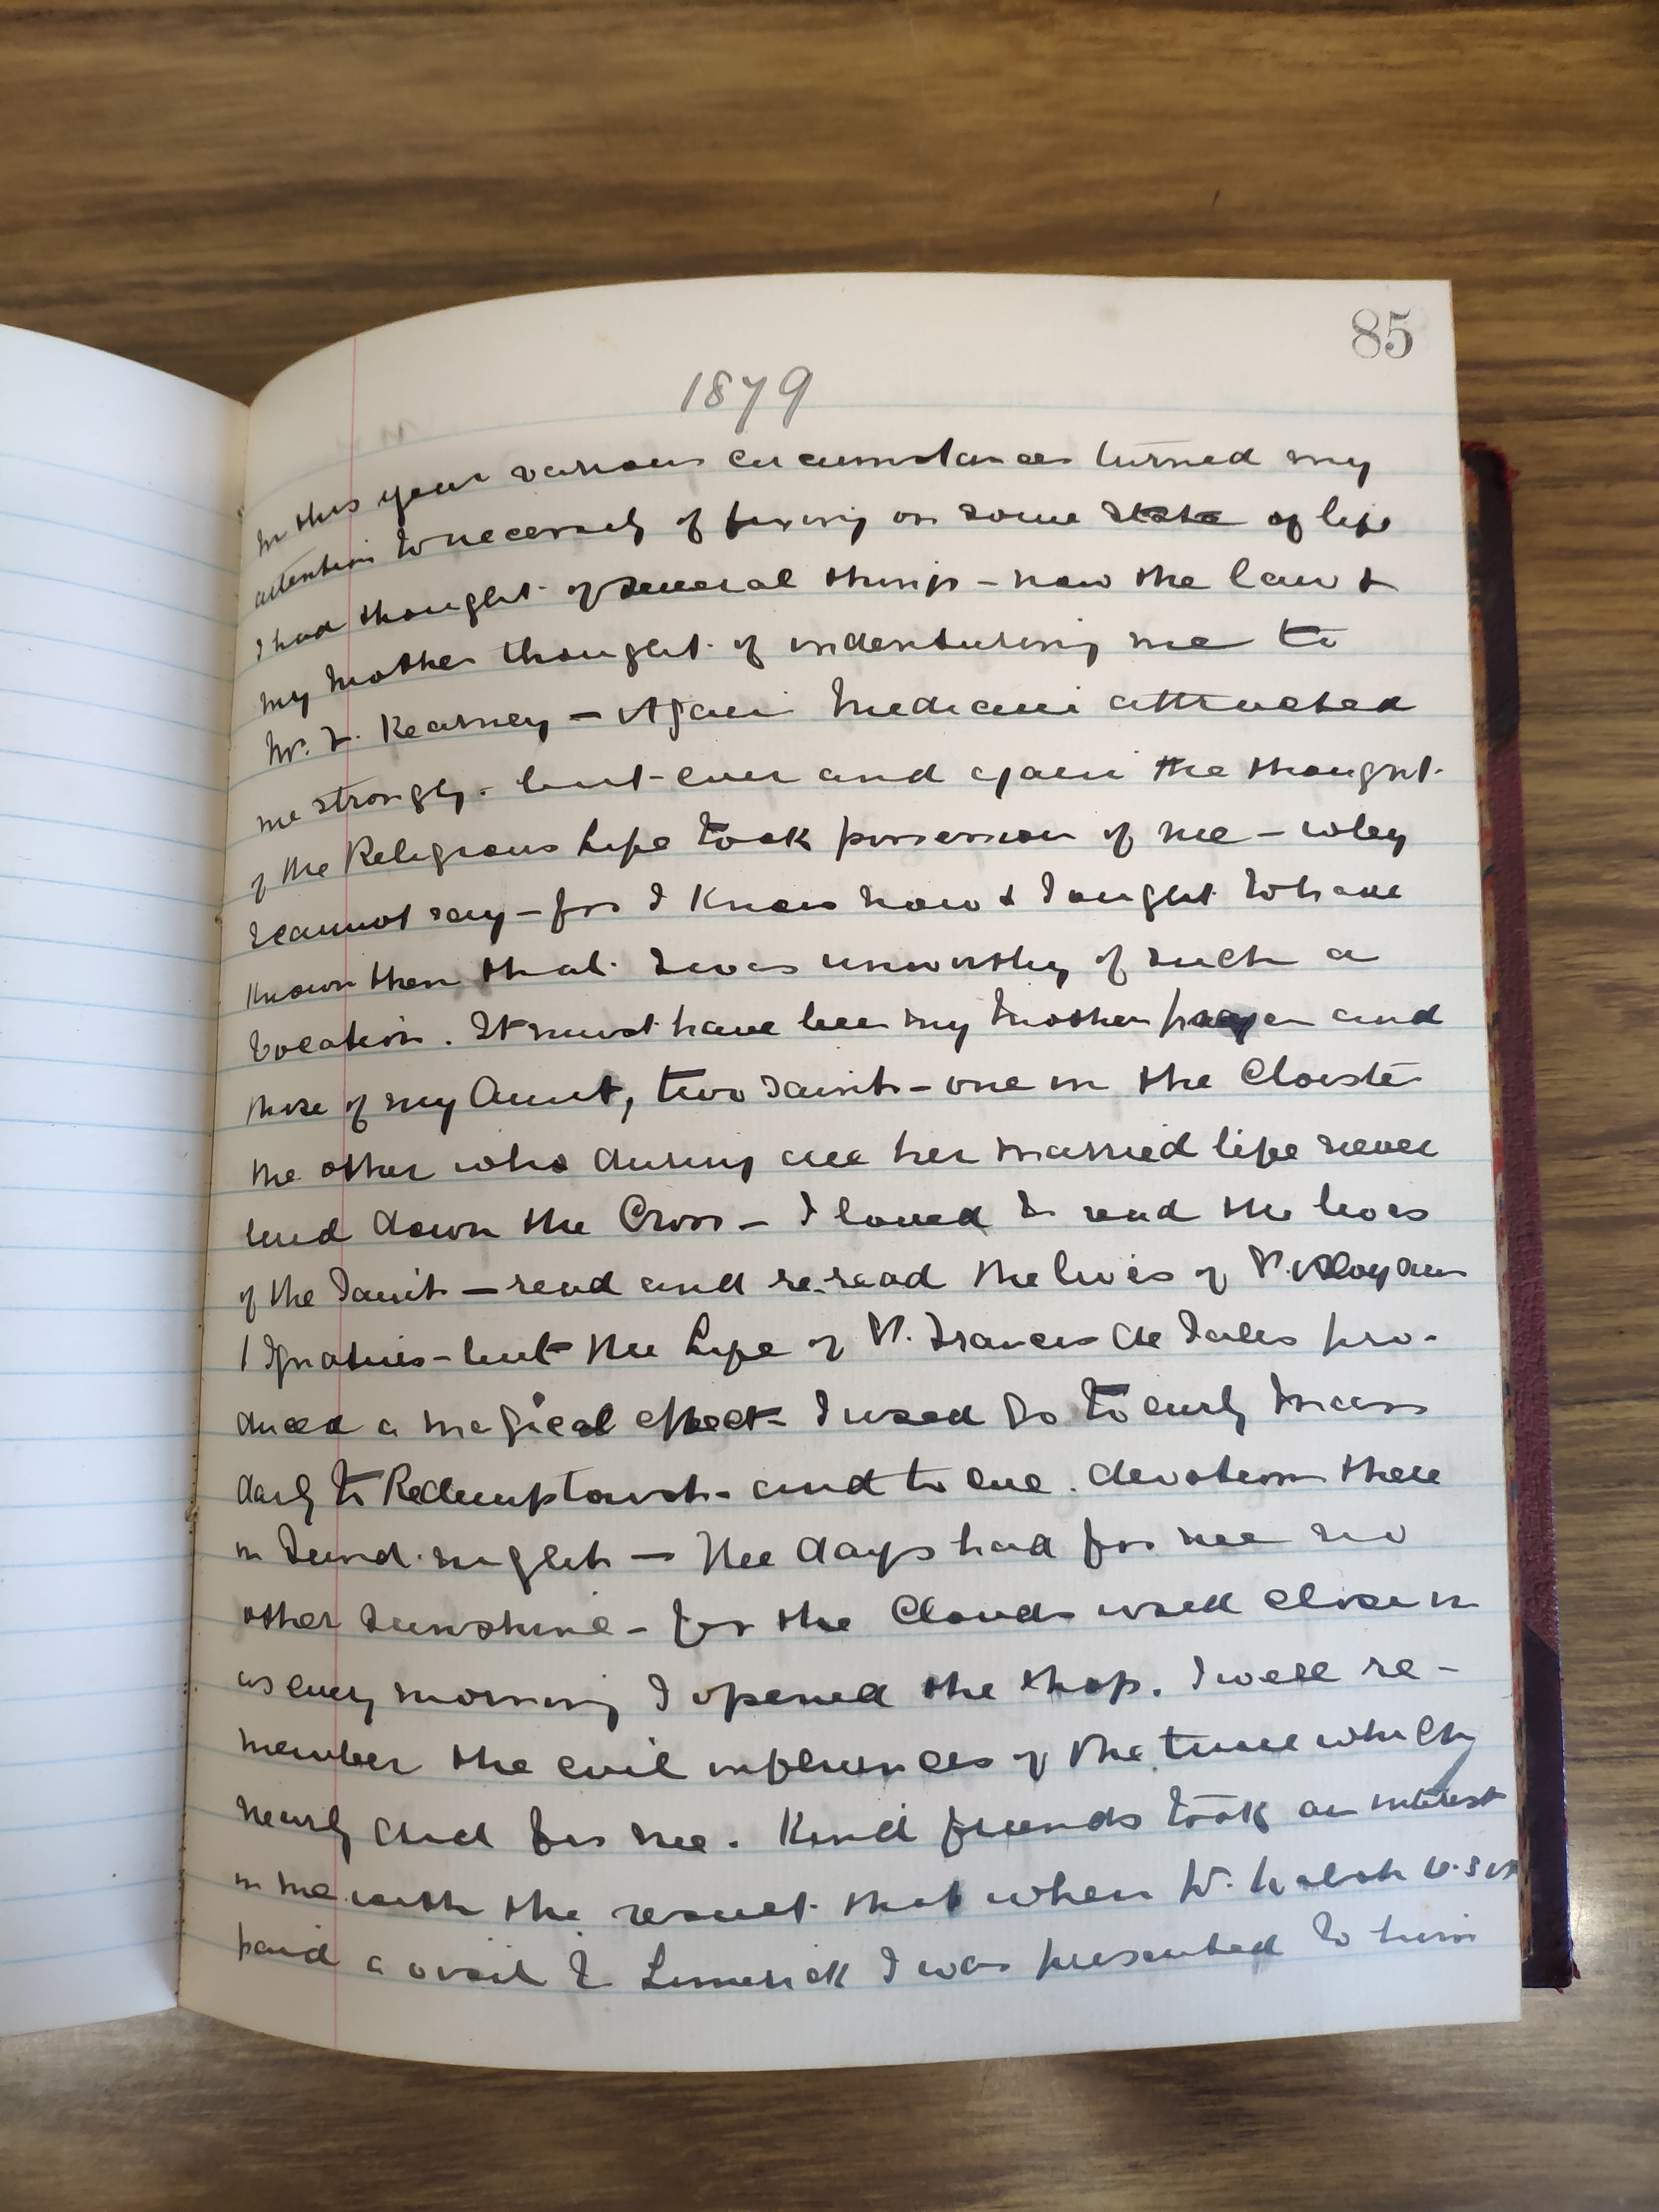 85
1879
In this year various circumstances turned my
attention to necessity of fixing on some state of life
I had thought of several things - now the law &
my Mother thought of indenturing me to
Mr. L. Kearney - Again Medicine attracted
me strongly - but ever and again the thought
of the Religious Life took possession of me - why
I cannot say - for I know now & I ought to have
known then that I was unworthy of such a
Vocation. It must have been my Mother prayer and
those of my Aunt, two Saints - one in the Cloister
the other who during all her married life never
laid down the Cross - I loved to read the lives
of the Saints - read and re-read the lives of St. Aloysius
Ignatius - but the Life of St. Francis de Sales pro-
duced a magical effect - I used go to early Mass
daily to Redemptorists - and to eve. devotions there
on Sund. nights - The days had for me no
other Sunshine - for the Clouds used close in
as every morning I opened the shop. I well re-
member the evil influences of the time which
nearly did for me. Kind friends took an interest
in me with the result that when W. Walsh
paid a visit to Limerick I was presented to him